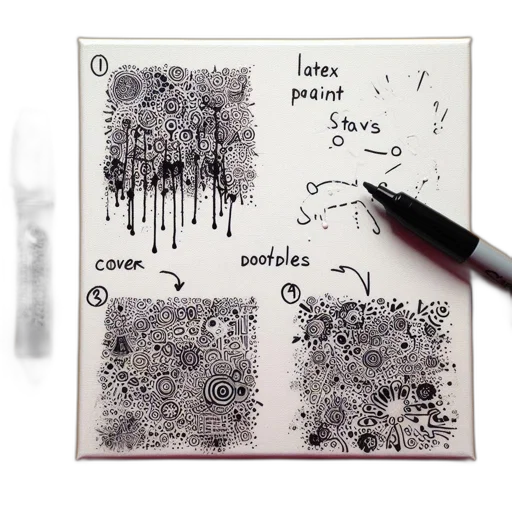 1
latex
paaint
Stavs
cover
dootdles
3
4